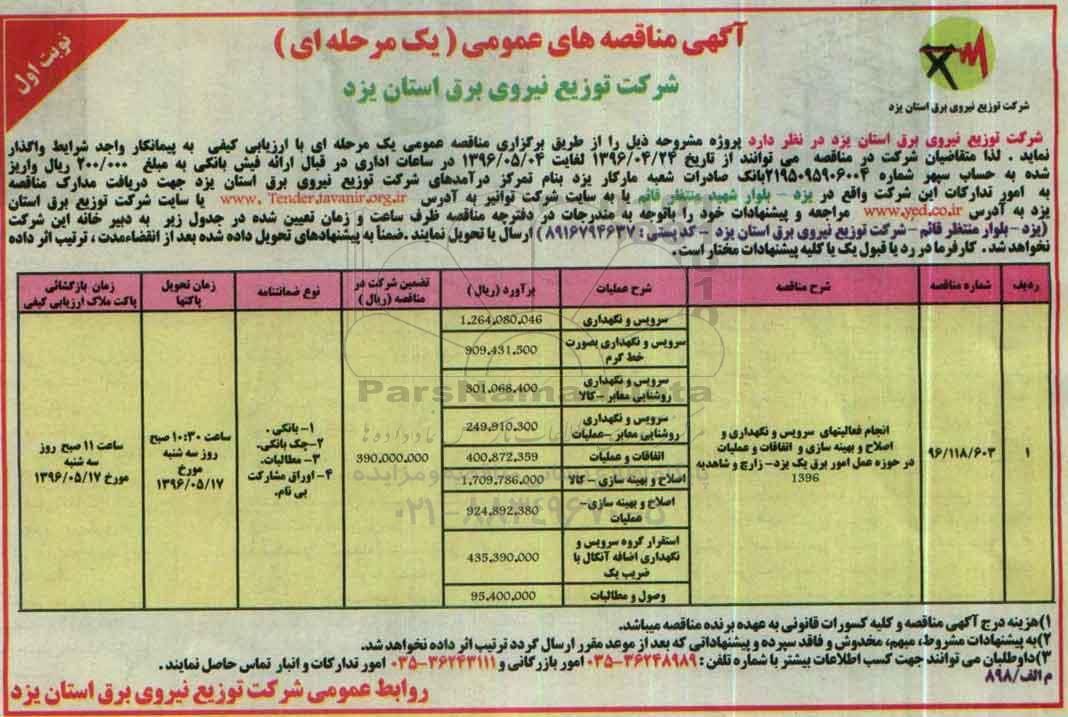 آگهی مناقصه های عمومی ( یک مرحله ای )
نوبت اول
شرکت توزیع نیروی برق استان یزد
شرکت توزیع نیروی برق استان یزد
شرکت توزیع نیروی برق استان یزد در نظر دارد پروژه مشروحه ذیل را از طریق برگزاری مناقصه عمومی یک مرحله ای با ارزیابی کیفی به پیمانکار واجد شرایط واگذار
نماید . لذا متقاضیان شرکت در مناقصه می توانند از تاریخ ۱۳۹۶/۰۴/۲۴ لغایت ۱۳۹۶/۰۵/۰۴ در ساعات اداری در قبال ارائه فیش بانکی به مبلغ ۲۰۰/۰۰۰ ریال واریز
شده به حساب سپهر شماره ۰۲۱۹۵۰۹۵۹۰۶۰۰۴بانک صادرات شعبه مارکار یزد بنام تمرکز درآمدهای شرکت توزیع نیروی برق استان یزد جهت دریافت مدارک مناقصه
به امور تدارکات این شرکت واقع در یزد – بلوار شهید منتظر قائم یا به سایت شرکت توانیر به آدرس www. Tender.tavanir.org.ir یا سایت شرکت توزیع برق استان
یزد به آدرس www.yed.co.ir مراجعه و پیشنهادات خود را باتوجه به مندرجات در دفترچه مناقصه ظرف ساعت و زمان تعیین شده در جدول زیر به دبیر خانه این شرکت
(یزد – بلوار منتظر قائم – شرکت توزیع نیروی برق استان یزد – کد پستی : ۸۹۱۶۷۹۴۶۳۷) ارسال یا تحویل نمایند .ضمناً به پیشنهادهای تحویل داده شده بعد از انقضاءمدت ، ترتیب اثر داده
نخواهد شد . کارفرما در رد یا قبول یک یا کلیه پیشنهادات مختار است .
ردیف شماره مناقصه شرح مناقصه شرح عملیات برآورد (ریال ) تضمین شرکت در مناقصه (ریال ) نوع ضمانتنامه زمان تحویل پاکتها زمان بازگشائی پاکت ملاک ارزیابی کیفی
۱
۹۶/۱۱۸/۶۰۳
انجام فعالیتهای سرویس و نگهداری و
اصلاح و بهینه سازی و اتفاقات و عملیات
در حوزه عمل امور برق یک یزد – زارچ و شاهدیه
1396
سرویس و نگهداری 1.264.080.046
سرویس و نگهداری بصورت خط گرم 909.431.500
سرویس و نگهداری روشنایی معابر – کالا 301.068.400
سرویس و نگهداری روشنایی معابر – عملیات 249.910.300
اتفاقات و عملیات 400.872.359
اصلاح و بهینه سازی – کالا 1.709.786.000
اصلاح و بهینه سازی – عملیات 924.892.380
استقرار گروه سرویس و نگهداری اضافه آنکال با ضریب یک 435.390.000
وصول و مطالبات 95.400.000
390.000.000
۱– بانکی .
۲–چک بانکی.
۳– مطالبات.
۴– اوراق مشارکت
بی نام.
ساعت ۱۰:۳۰ صبح
روز سه شنبه
مورخ
۱۳۹۶/۰۵/۱۷
ساعت ۱۱ صبح روز
سه شنبه
مورخ ۱۳۹۶/۰۵/۱۷
ParsNamadData
۰۲۱-۸۸۳۴۹۶۷۰-۵
۱)هزینه درج آگهی مناقصه و کلیه کسورات قانونی به عهده برنده مناقصه میباشد.
۲)به پیشنهادات مشروط، مبهم، مخدوش و فاقد سپرده و پیشنهاداتی که بعد از موعد مقرر ارسال گردد ترتیب اثر داده نخواهد شد.
۳)داوطلبان می توانند جهت کسب اطلاعات بیشتر با شماره تلفن : ۳۶۲۴۸۹۸۹–۰۳۵ امور بازرگانی و ۳۶۲۴۳۱۱۱–۰۳۵ امور تدارکات و انبار تماس حاصل نمایند .
م الف/۸۹۸
روابط عمومی شرکت توزیع نیروی برق استان یزد